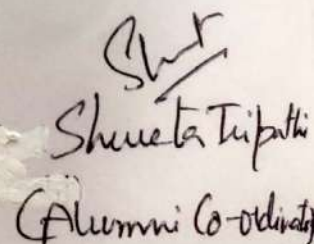 Shweta Tripathi
(Alumni Co-ordinator)